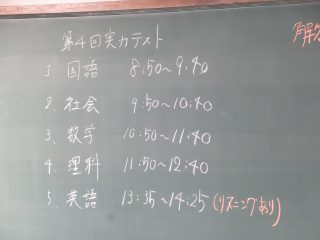 第4回実力テスト
解答
1. 国語 8:50~9:40
2. 社会 9:50~10:40
3. 数学 10:50~11:40
4. 理科 11:50~12:40
5. 英語 13:35~14:25 (リスニングあり)